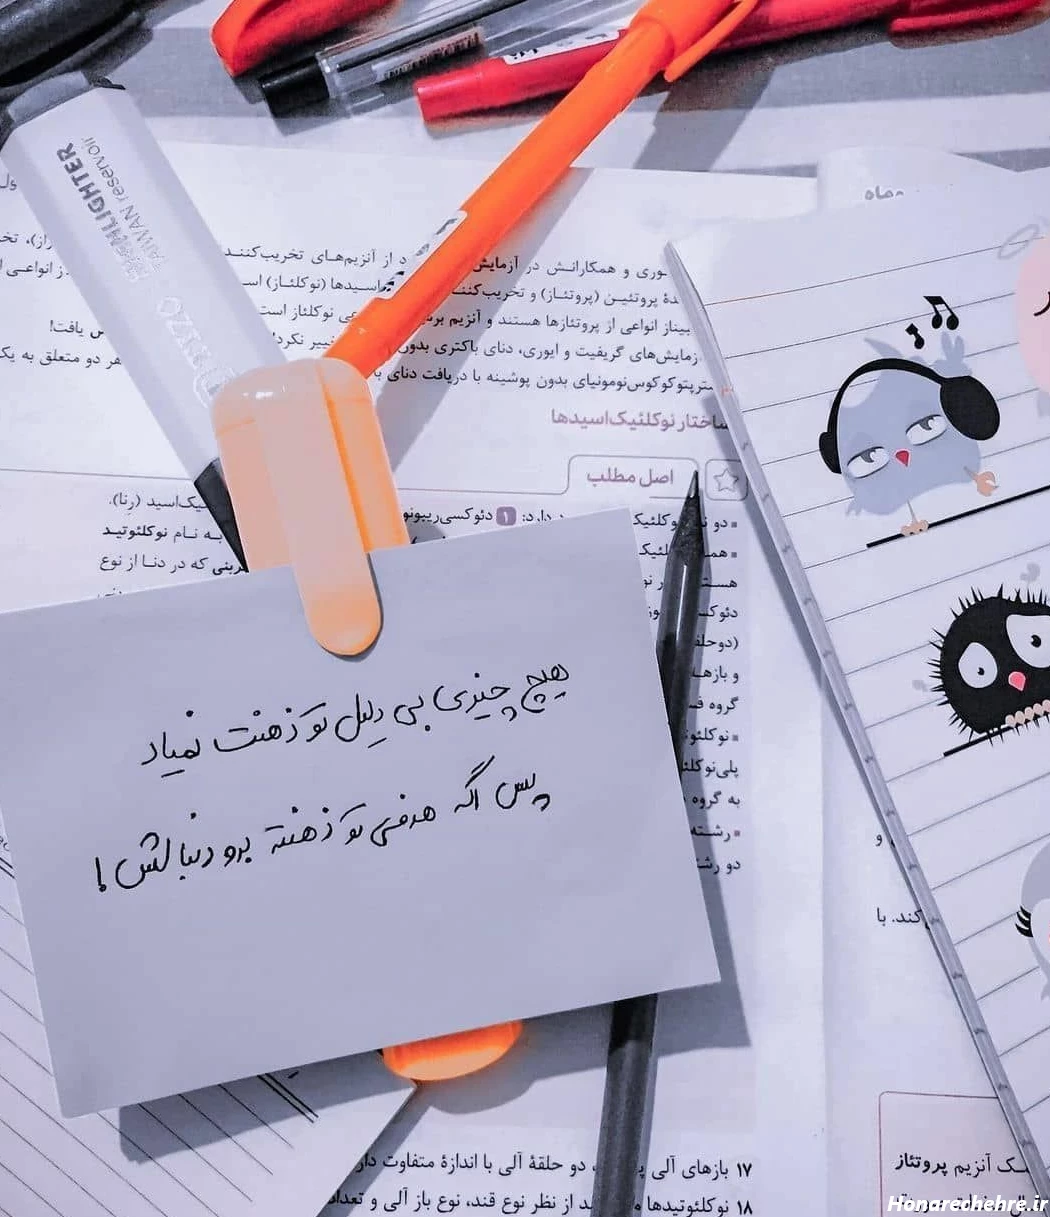 HIGHLIGHTER
TAIWAN reservoir
وری و همکارانش در آزمایش
د از آنزیم‌های تخریب‌کننده
دهٔ پروتئین (پروتئاز) و تخریب‌کننده
اسیدها (نوکلئاز) است
بیناز انواعی از پروتئازها هستند و آنزیم
عی نوکلئاز است
زمایش‌های گریفیت و ایوری، دنای باکتری بدون
غییر نکرد
سترپتوکوکوس‌نومونیای بدون پوشینه با دریافت دنای
راز)، تخ
ز انواعی از
س یافت!
هر دو متعلق به یک
ساختار نوکلئیک‌اسیدها
اصل مطلب
دو
دارد: ۱ دئوکسی‌ریبونو
یک‌اسید (رنا).
به نام نوکلئوتید
که در دنا از نوع
(دوحلقه
گروه
پلی‌نوکلئو
به گروه
رشته
دو رشته
هیچ چیزی بی دلیل تو ذهنت نمیاد
پس اگه هدفی تو ذهنته برو دنبالش!
کند. با
ـک آنزیم پروتئاز
۱۷ بازهای آلی
دو حلقهٔ آلی با اندازهٔ متفاوت دار
۱۸ نوکلئوتیدها
از نظر نوع قند، نوع باز آلی و تعداد
Honarechehre.ir